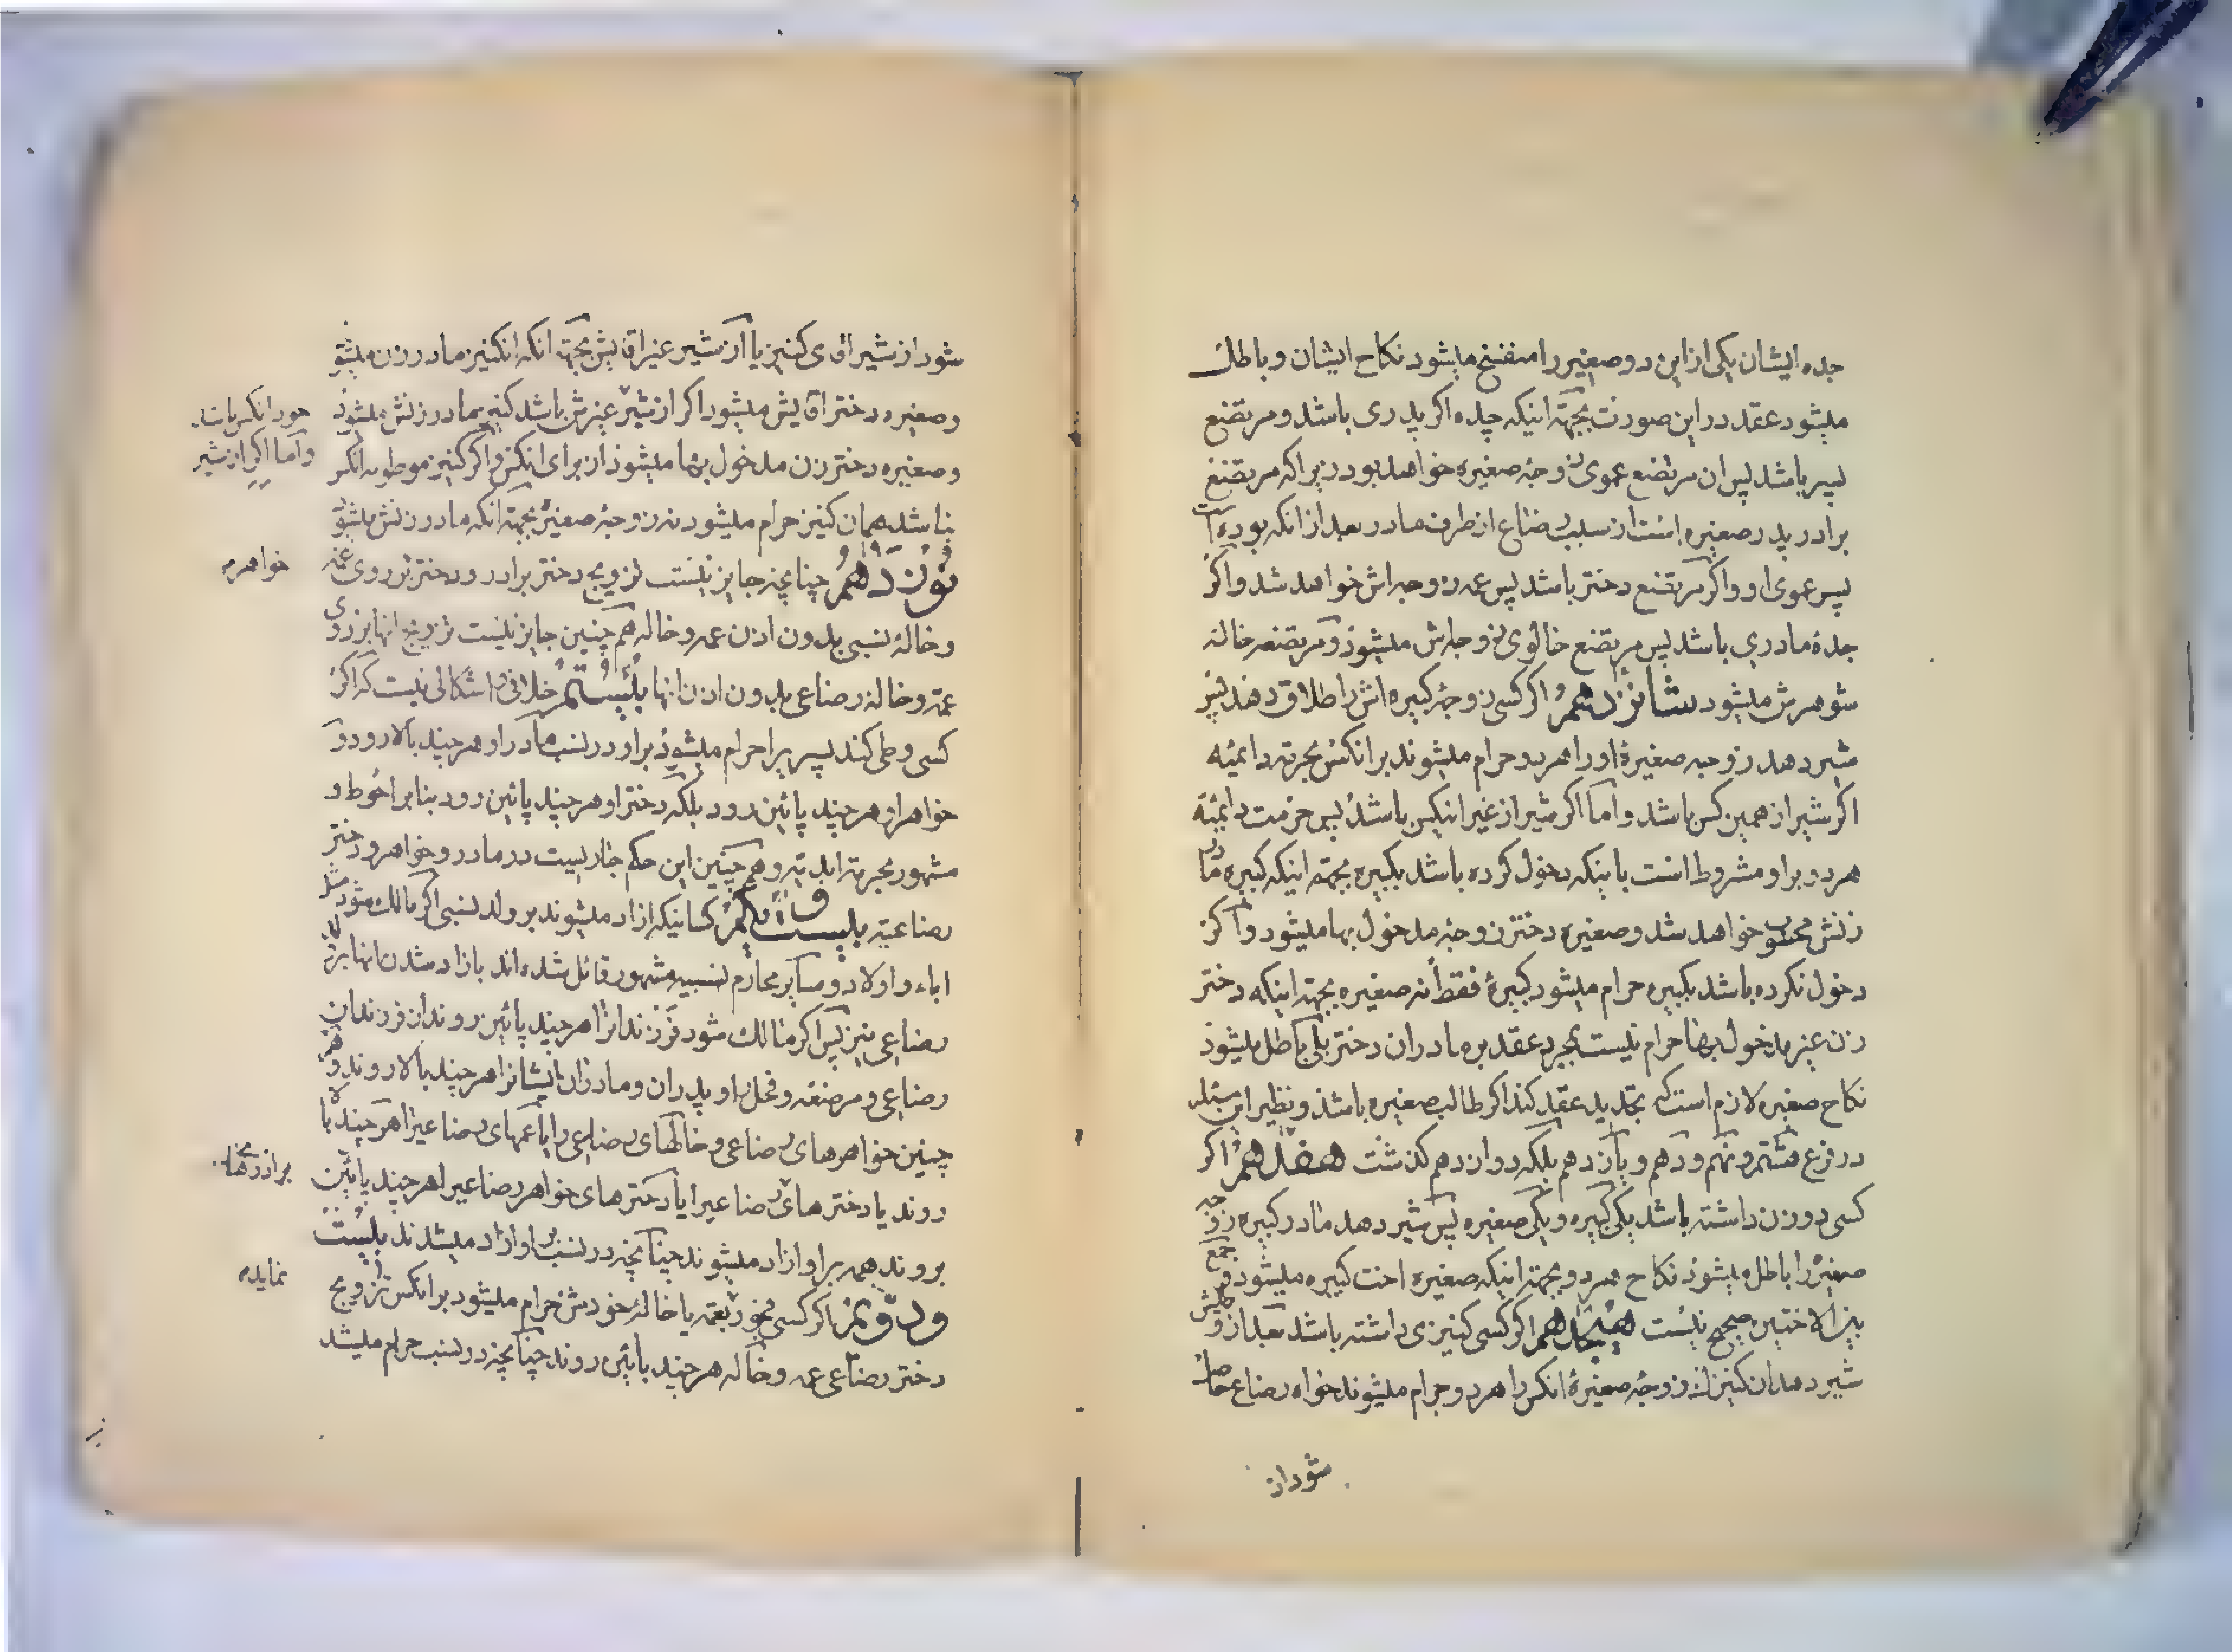 جده ایشان یکی از این دو صغیر را منفسخ میشود نکاح ایشان و باطل
میشود عقد در این صورت بجهة اینکه جده اکر پدری باشد و مرتضع
پسر باشد پس ان مرتضع عموی زوجهٔ صغیره خواهد بود زیرا که مرتضع
برادر پدر صغیره است از سبب رضاع از طرف مادر بعد از انکه بوده است
پسر عموی او و اکر مرتضع دختر باشد پس عمه زوجه اش خواهد شد و اکر
جدهٔ مادری باشد پس مرتضع خالوی زوجه‌اش میشود و مرتضعه خاله
شوهرش میشود شانزدهم اکر کسی زوجهٔ کبیره اش را طلاق دهد پس
شیر دهد زوجه صغیرهٔ او را هر دو حرام میشوند بر انکس بحرمة دائمیه
اکر شیر از همین کس باشد و اما اکر شیر از غیر اینکس باشد پس حرمت دائمیه
هر دو بر او مشروط است باینکه دخول کرده باشد بکبیره بجهة اینکه کبیره مادر
زنش محسوب خواهد شد و صغیره دختر زوجهٔ مدخول بها میشود و اکر
دخول نکرده باشد بکبیره حرام میشود کبیرهٔ فقط نه صغیره بجهة اینکه دختر
زن غیر مدخول بها حرام نیست بمجرد عقد بر مادر ان دختر بلی باطل میشود
نکاح صغیره لازم است که تجدید عقد کند اکر طالب صغیره باشد و نظیر این مسئله
در فرع هشتم و نهم و دهم و یازدهم بلکه دوازدهم کذشت هفدهم اکر
کسی دو زن داشته باشد یکی کبیره و یکی صغیره پس شیر دهد مادر کبیره زوجه
صغیره را باطل میشود نکاح هر دو بجهة اینکه صغیره اخت کبیره میشود و جمع
بین الاختین صحیح نیست هیجدهم اکر کسی کنیزی داشته باشد بعد از وطیش
شیر دهد ان کنیز زوجهٔ صغیرهٔ انکس را هر دو حرام میشوند خواه رضاع حاصل
شود از
شود از شیر اقای کنیز یا از شیر غیر اقایش بجهة انکه انکنیز مادر زن میشود
و صغیره دختر اقایش میشود اکر از شیر غیرش باشد کنیز مادر زنش میشود
و صغیره دختر زن مدخول بها میشود از برای انکس و اکر کنیز موطوئه انکس
نباشد همان کنیز حرام میشود نه زوجهٔ صغیره بجهة انکه مادر زنش میشود
نوزدهم چنانچه جایز نیست تزویج دختر برادر و دختر بر روی عمه
و خالهٔ نسبی بدون اذن عمه و خاله همچنین جایز نیست تزویج انها بر روی
عمه و خاله رضاعی بدون اذن انها بیستم خلافی و اشکالی نیست که اکر
کسی وطی کند پسریرا حرام میشود بر او در نسب مادر او هر چند بالا رود و
خواهر او هر چند پائین رود بلکه دختر او هر چند پائین رود بنابر احوط و
مشهور بحرمة ابدیة و همچنین این حکم جاریست در مادر و خواهر و دختر
رضاعیه بیست و یکم کسانیکه ازاد میشوند بر ولد نسبی اکر مالک شود مثل
اباء و اولاد و سایر محارم نسبیه مشهور قائل شده‌اند بازاد شدن انها بر
رضاعی نیز پس اکر مالک شود فرزندانرا هر چند پائین روند ان فرزندان
رضاعی و مرضعه و فحل او پدران و مادران ایشانرا هر چند بالا روند و هم
چنین خواهرهای رضاعی و خالهای رضاعی را یا عمهای رضاعیرا هر چند بالا
روند یا دخترهای رضاعیرا یا دخترهای خواهر رضاعیرا هر چند پائین
بروند همه بر او ازاد میشوند چنانچه در نسب بر او ازاد میشدند بیست
و دوم اکر کسی بعمه یا خالهٔ خودش حرام میشود بر انکس تزویج
دختر رضاعی عمه و خاله هر چند پائین روند چنانچه در نسب حرام میشد
خود انکس باشد
و اما اکر از شیر
خواهر
نماید